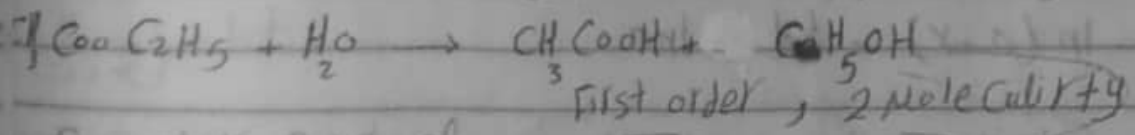 COO C2H5 + H2O → CH3 COOH + C H5 OH
First order, 2 Moleculirty